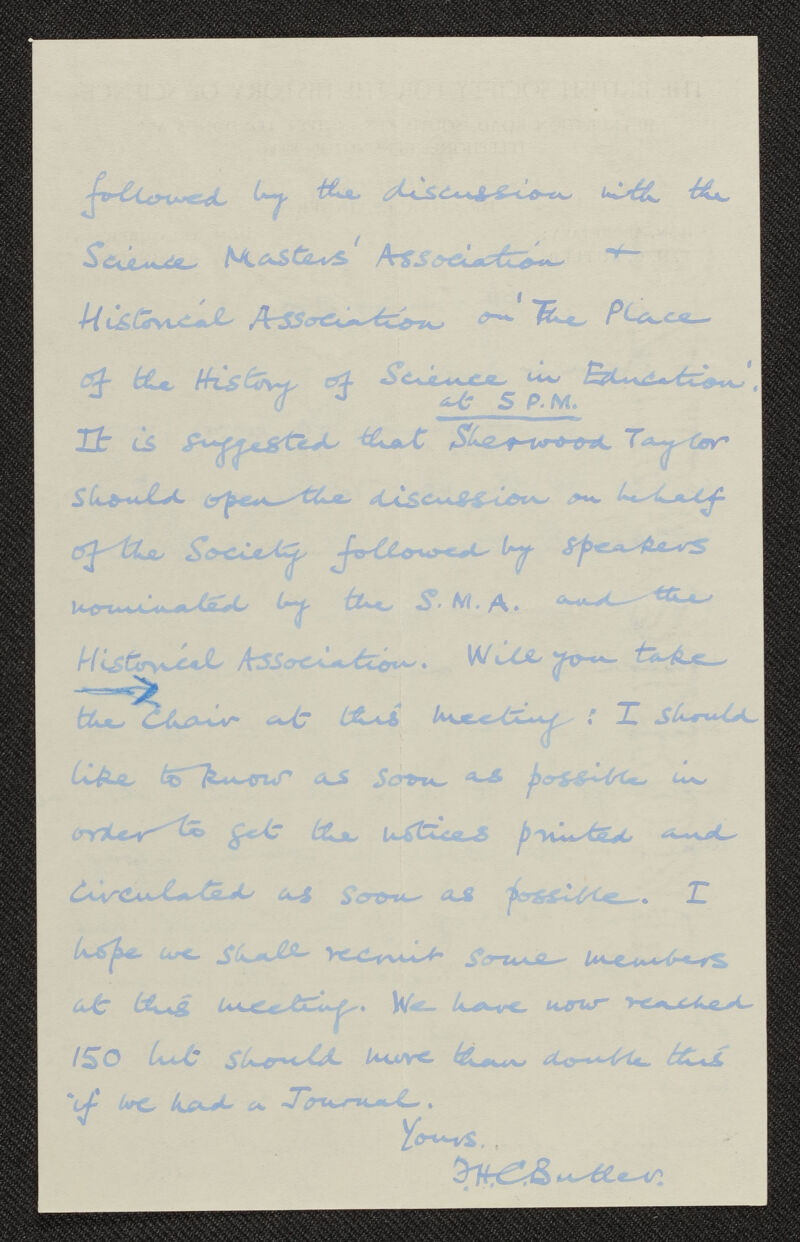 followed by the discussion with the
Science Masters' Association +
Historical Association on 'The Place
of the History of Science in Education'.
at 5 P.M.
It is suggested that Sherwood Taylor
should open the discussion on behalf
of the Society followed by speakers
nominated by the S.M.A. and the
Historical Association. Will you take
the Chair at this meeting: I should
like to know as soon as possible in
order to get the notices printed and
circulated as soon as possible. I
hope we shall recruit some members
at this meeting. We have now reached
150 but should more than double this
if we had a Journal.
Yours.
F.H.C. Butler.